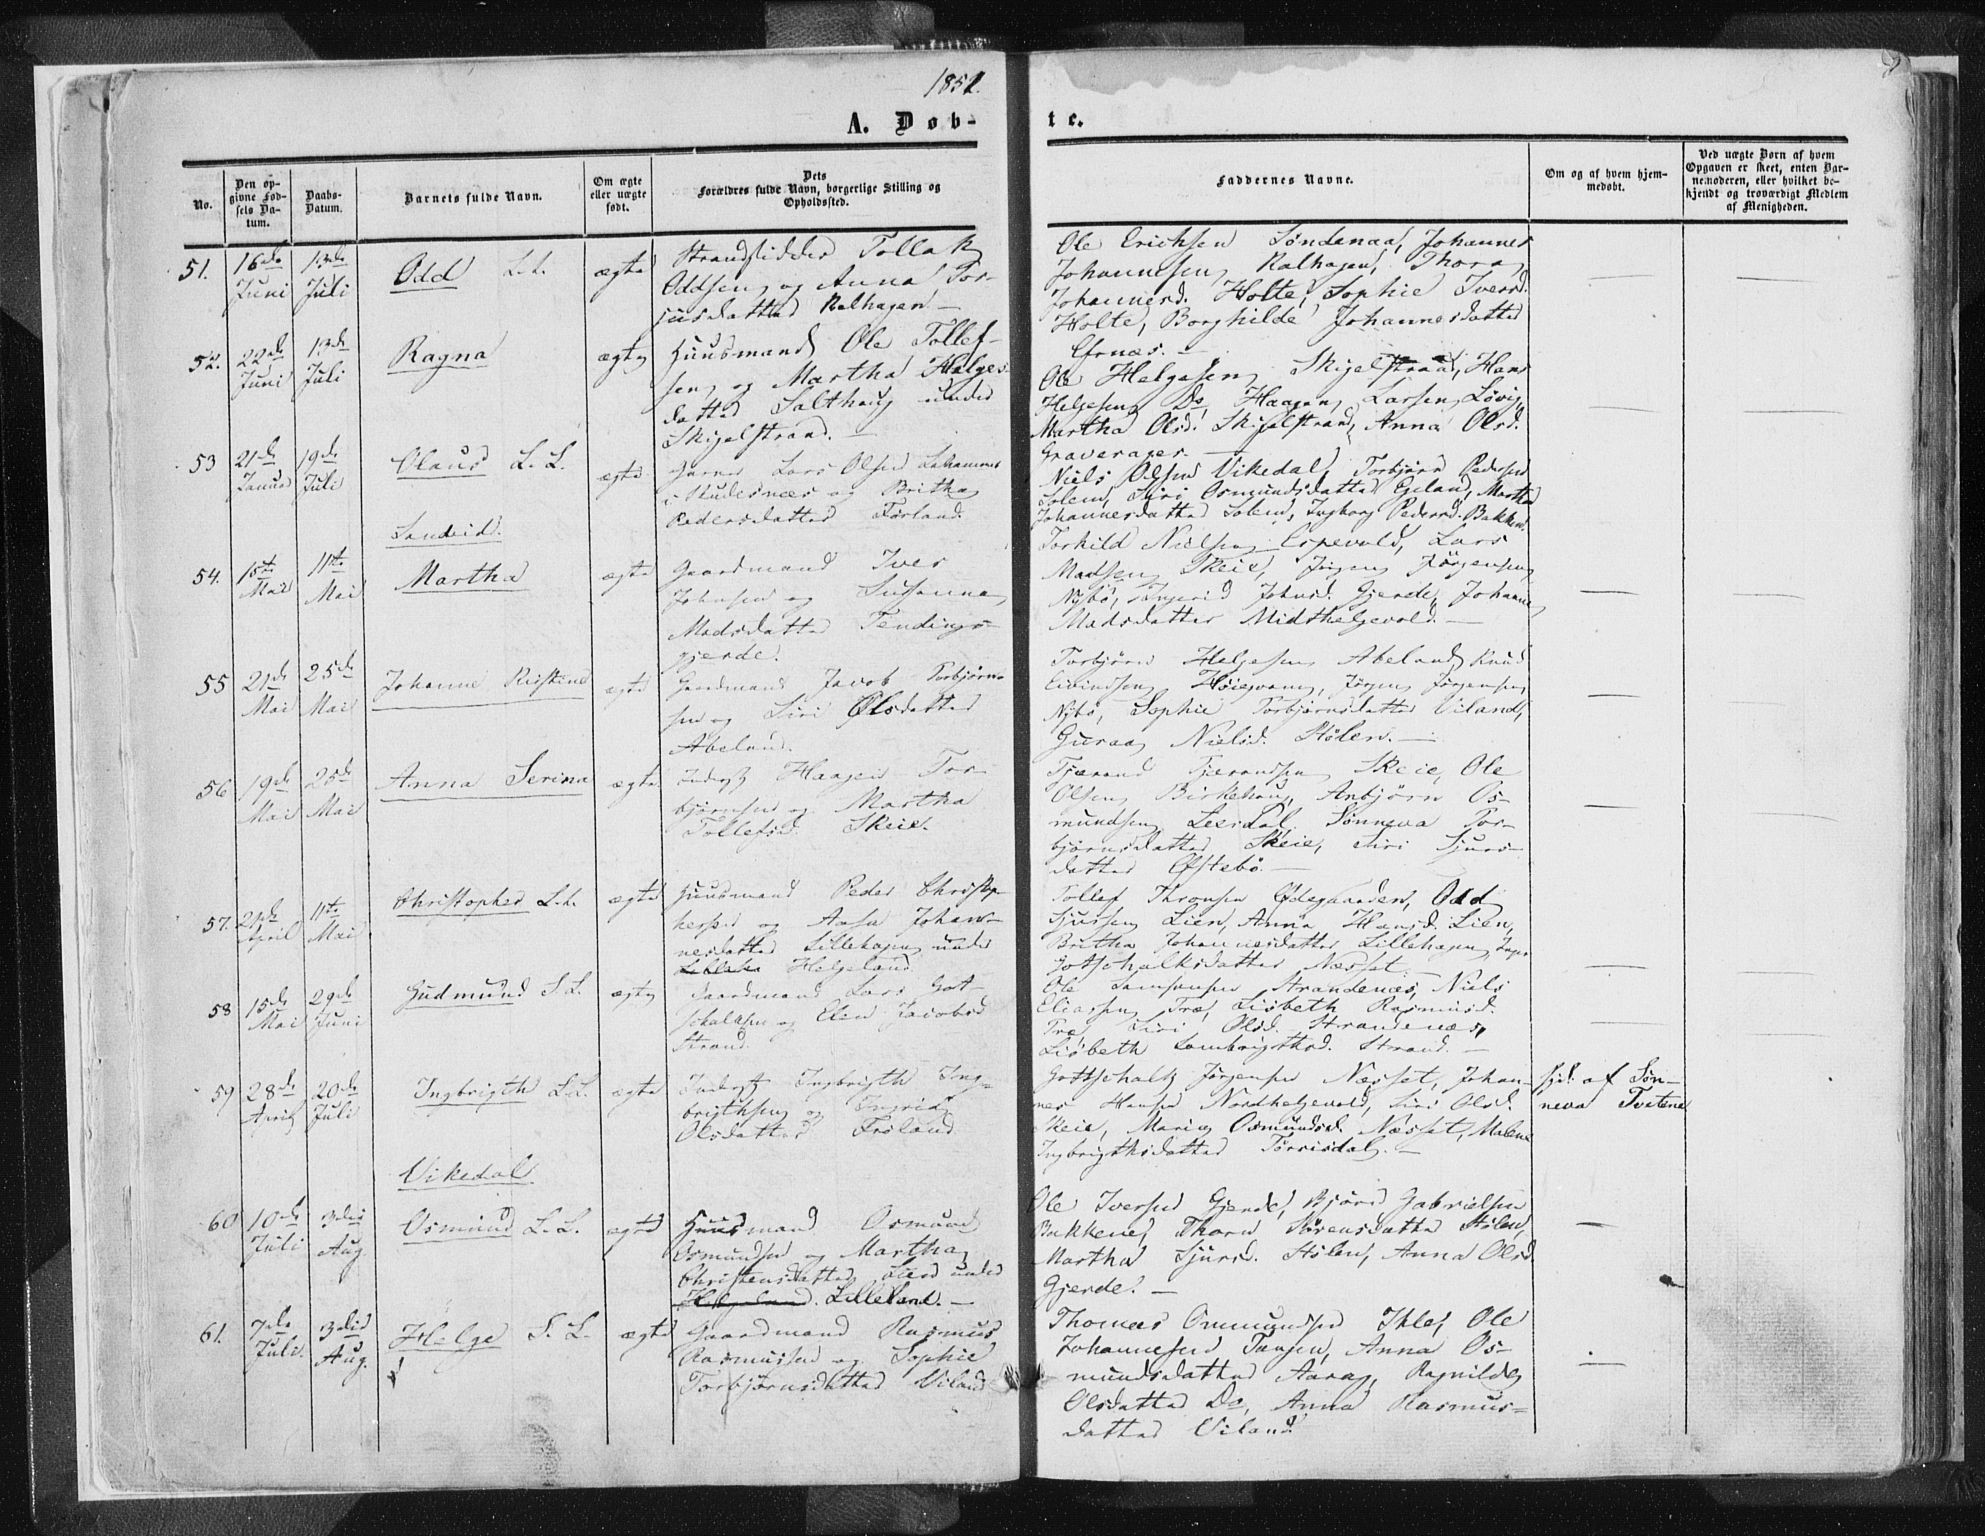 1851.
A. Døb-
te.
No.
Den op-
givne Fød-
sels Da-
tum.
Daabs-
Datum.
Barnets fulde Navn.
Om ægte
eller uægte
født.
Dets
Forældres fulde Navn, borgerlige Stilling og
Opholdssted.
Faddernes Navne.
Om og af hvem hjem-
medøbt.
Ved uægte Børn af hvem
Opgaven er skeet, enten Bar-
nemoderen, eller hvilket be-
kjendt og troværdigt Medlem
af Menigheden.
51.
16de
Juni
13de
Juli
Odd
ægte
Strandsidder Tollak
Oddsen og Anna Tor-
jusdatter Ralhagen.—
Ole Erichsen Søndenaa, Johannes
Johannesen Ralhagen, Thora
Johannesd. Holte, Sophie Iversd.
Holte, Borghilde Johannesdatter
Efnæs.—
52.
22de
Juni
13de
Juli
Ragna
ægte
Huusmand Ole Tollef-
sen og Martha Helges-
datter Salthaug under
Skigelstrand.—
Ole Helgesen Skigelstrand, Hans
Helgesen Do Haagen Larsen Løvig,
Martha Olsd. Skigelstrand, Anna Olsd.
53
21de
Januar
19de
Juli
Olaus L. L.
ægte
Lars Olsen
i Skudesnæs og Britha
Pedersdatter Førland.
Niels Olsen Vikedal, Torbjørn Pedersen
Solem, Siri Osmundsdatter Eeland, Martha
Johannesdatter Solem, Ingborg Pedersd. Bakken.
Sandeid.
54.
15de
Mai
11te
Mai
Martha
ægte
Gaardmand Iver
Johnsen og Susanna
Madsdatter Tendings-
gjerde.
Torkild Nielsen Espevold, Lars
Madsen Skeie, Jørgen Jørgensen
Nybø, Ingerid Johnsd. Gjerde, Johanne
Madsdatter Midthelgevold.—
55
21de
Mai
25de
Mai
Johanne Kristine
ægte
Gaardmand Jacob Torbjørn-
sen og Siri Olsdatter
Abeland.
Torbjørn Helgesen Abeland, Knud
Eivindsen Høiegvam, Jørgen Jørgensen
Nybø, Sophie Torbjørnsdatter Viland,
Guroa Nielsd. Stølen.—
56
19de
Mai
25de
Mai
Anna Serina
ægte
Inderst Haagen Tor-
bjørnsen og Martha
Tollefsd. Skeie.
Tjerand Tjerandsen Skeie, Ole
Olsen Birkehaug, Anbjørn Os-
mundsen Leirdal, Sønneva Tor-
bjørnsdatter Skeie, Siri Sjurs-
datter Øfstebø.—
57.
21de
April
11te
Mai
Christopher L. L.
ægte
Huusmand Peder Christop-
hersen og Aasa Johan-
nesdatter Lillehagen under
Helgeland.
Tollef Thronsen Ødegaarden, Odd
Sjursen Lien, Anna Hansd. Lien,
Britha Johannesdatter Lillehagen, Inger
Gotschalksdatter Næsset.—
58
15de
Mai
29de
Juni
Gudmund S. L.
ægte
Gaardmand Lars Got-
schalksen og Elen Jacobsd.
Strand.
Ole Samsonsen Strandenæs, Niels
Eliassen Træ, Lisbeth Rasmusd.
Træ, Siri Olsd. Strandenæs,
Lisbeth Lambrigthsd. Strand.—
59
28de
April
20de
Juli
Ingbrigth L. L.
ægte
Inderst Ingbrigth Ing-
brigthsen og Ingrid
Olsdatter Frøland
Gottschalk Jørgensen Næsset, Johan-
nes Hansen Nordhelgevold, Siri Olsd.
Skeie, Maria Osmundsd. Næsset, Malene
Ingbrigthsdatter Tørrisdal.—
hjd. af Søn-
neva Tveitene
Vikedal.
60
10de
Juli
3die
Aug.
Osmund L. L.
ægte
Huusmand Osmund
Osmundsen og Martha
Christensdatter under
Helgeland. Lilleland.—
Ole Iversen Gjerde, Bjørn Gabrielsen
Bakkene, Thora Sørensdatter Stølen,
Martha Sjursd. Stølen, Anna Olsd.
Gjerde.—
61.
7de
Juli.
3die
Aug.
Helge S. L.
ægte
Gaardmand Rasmus
Rasmussen og Sophie
Torbjørnsdatter Viland
Thomas Ommundsen Ihle, Ole
Johannesen Tungen, Anna Os-
mundsdatter Aarag, Ragnilde
Olsdatter Do, Anna Rasmus-
datter Viland